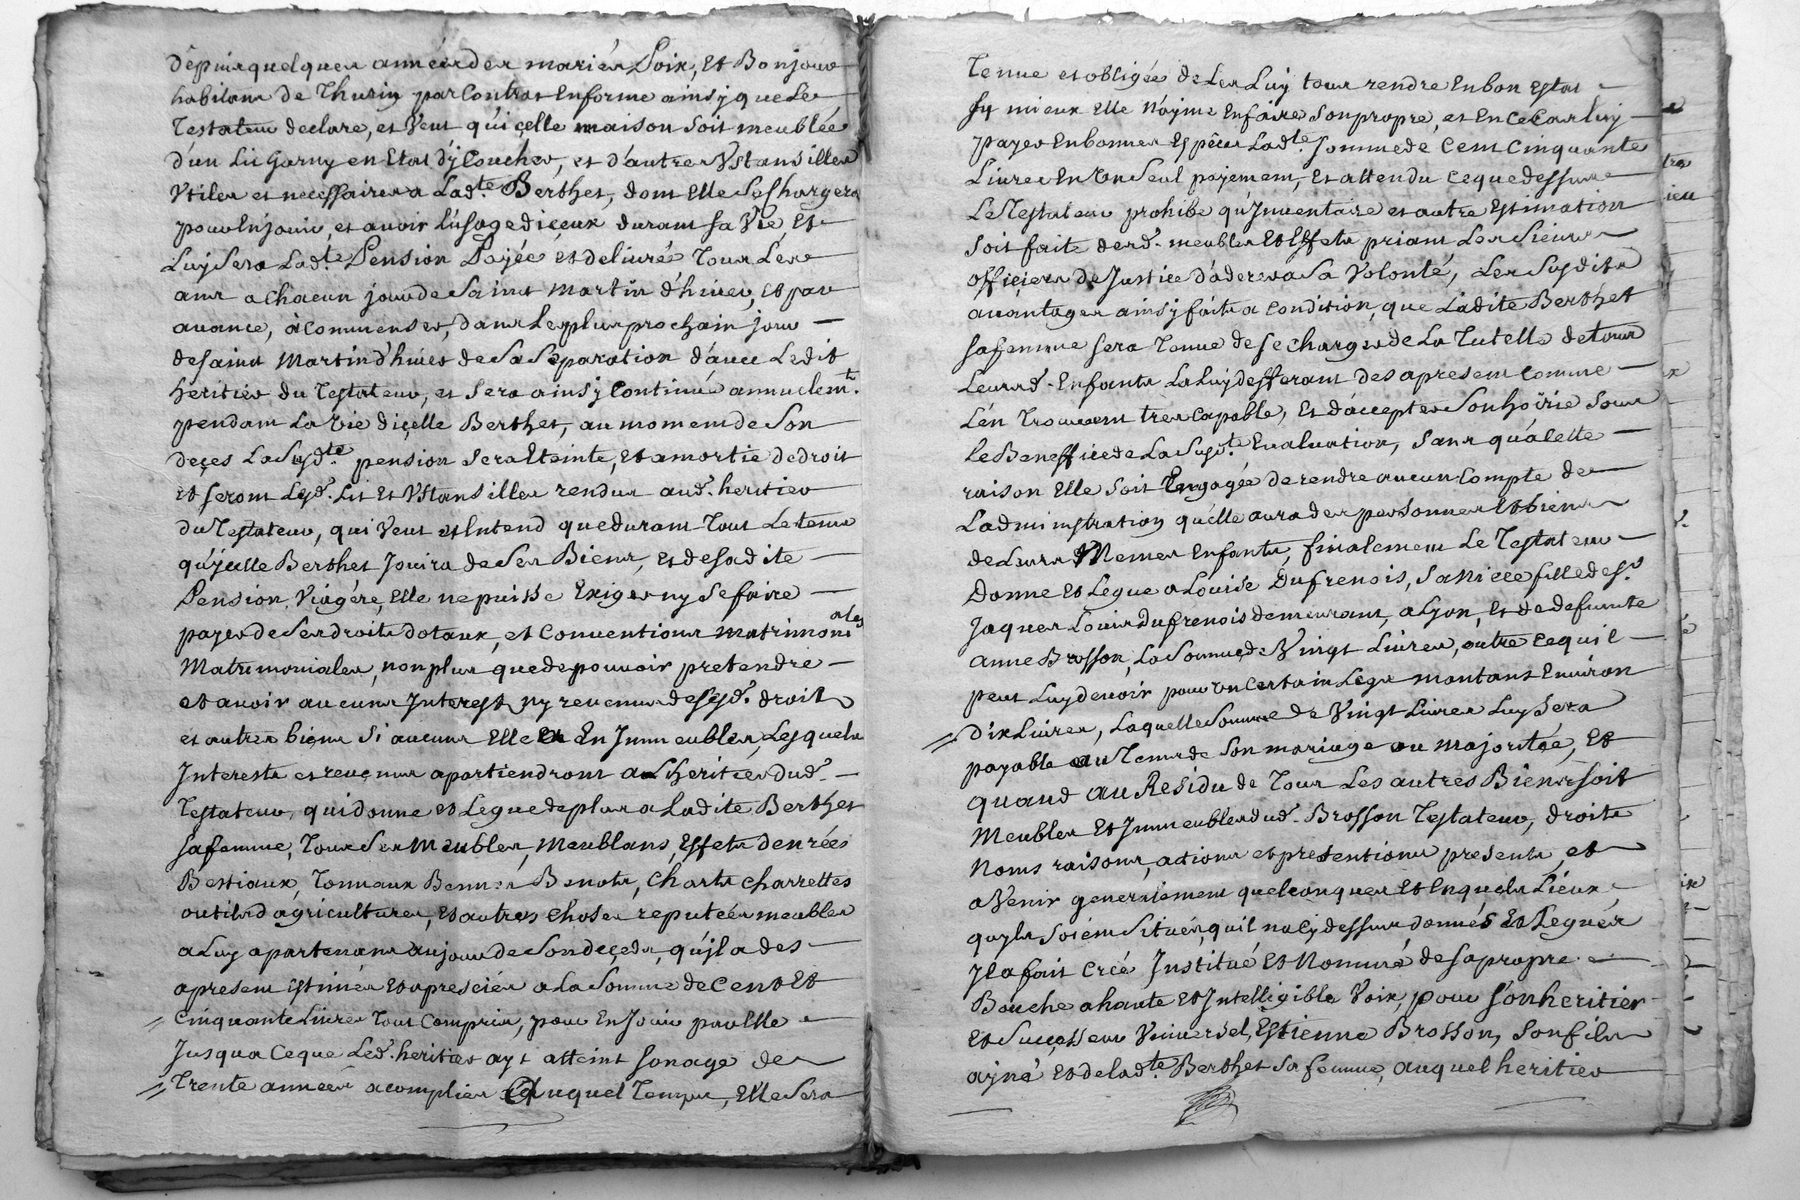 dépuis quelques années des mariés Loix, et Bonjour
habitans de Thurin par Contrat Enforme ainsy que Le
Testateur declare, et Veut qu'içelle maison soit meublée
d'un Lit Garny en Etat d'y Coucher, et d'autres Ustansilles
Utiles et necessaires a Ladte. Berthet, dont Elle se Chargera
pour En jouir, et avoir L'usage d'iceux durant sa Vie, Et
Luy sera Ladte. Pension Païée et deliuré Tous Les
ans a Chacun jour de Saint Martin d'hiuer, Et par
auance, à Commenser, dans Le plus prochain jour
de saint Martin d'hiuer de sa Separation d'auec Ledit
heritier du Testateur, et sera ainsy Continué annuelemt.
pendant La Vie d'içelle Berthet, au moment de Son
deçes La Sudte. pension sera Eteinte, et amortie de droit
et seront Lesd. Lit Et Ustansilles rendus aud. heritier
du Testateur, qui Veut et Entend que durant Tout Le tems
qu'jcelle Berthet Jouira de Ses Biens, et de sadite
Pension Viagére, Elle ne puisse Exiger ny se faire
payer de Ses droits dotaux, et Conuentions matrimoniales
Matrimoniales, non plus que de pouuoir pretendre
et avoir aucuns Interest ny reuenus de sesd. droits
et autres biens si aucuns Elle a En Immeubles, Lesquels
Interests et reuenus apartiendront a L'heritier dud.
Testateur, qui donne et Legue de plus a Ladite Berthet
sa femme, Tous Ses Meubles, Meublans, Effets denrées
Bestiaux, Tonneaux Bennes Benots, Chars Charrettes
outils d'agriculture, et autres Choses reputées meubles
a Luy apartenans au jour de Son deçeds, qu'jl a des
apresent Estimés et apresciés a La Somme de Cent et
Cinquante Livres Tout Compris, pour En Jouir par Elle
Jusqu'a Ce que Led. heritier ayt atteint son age de
Trente années acomplies Auquel Temps, Elle Sera
Tenue et obligée de Les Luy tous rendre En bon Estat
sy mieux Elle N'ayme En faire Son propre, et En Ce Cas Luy
payer En bonnes Espêces Ladte. Somme de Cent Cinquante
Livres En Un Seul payement, Et attendu Ce que dessus
Le Testateur prohibe qu'Inuentaire et autre Estimation
soit faite desd. meubles Et Effets priant Les Sieurs
officiers de Justice d'aderer a Sa Volonté, Les Susdits
auantages ainsy faits a Condition, que Ladite Berthet
sa femme sera Tenue de se Charger de La Tutelle de tous
Leursd. Enfants La Luy defferant des apresent Comme
L'en Trouuant tres Capable, Et d'accepter Son hoirie sous
Le Beneffice de La Susdte. Eualuation, sans qu'a Cette
raison Elle soit Engagée de rendre aucun Compte de
L'administration qu'Elle aura des personnes Et biens
de Leurs Memes Enfants, finalement Le Testateur
Donne Et Legue a Louise Dufrenois, sa Niece fille de Sr.
Jaques Louis Dufrenois demeurant, a Lyon, Et de defunte
anne Brosson, La Somme de Vingt Livres, outre Ce quil
peut Luy deuoir pour Un Certain Legs montant Enuiron
Dix Livres, Laquelle Somme de Vingt Livres Luy Sera
payable au Tems de Son mariage ou majorité, Et
quand au Residu de Tous Les autres Biens soit
Meubles Et Immeubles dud. Brosson Testateur, droits
Noms raisons, actions et pretentions presents, et
a Venir generalement quelconques Et En quels Lieux
quyls Soient Situés, qu'il n'a Cy dessus donnés Et Legués
Jl a fait Créé Institué Et Nommé de sa propre
Bouche a haute Et Intelligible Voix, pour Son heritier
Et Successeur Vniuersel, Estienne Brosson, Son fils
ayné Et de ladte. Berthet Sa femme, auquel heritier